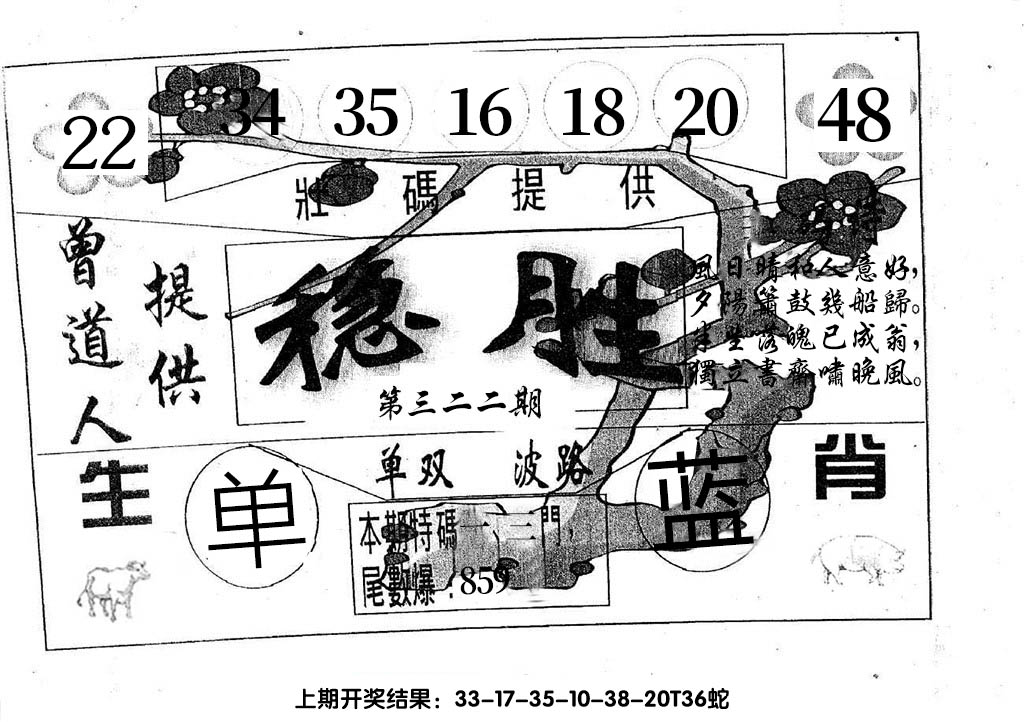 22 34 35 16 18 20 48
壯碼提供
曾道人
提供
稳胜
第三二二期
風日晴和人意好，
夕陽簫鼓幾船歸。
生落魄已成翁，
獨立書齋嘯晚風。
生肖
单双 波路
单
蓝
本期特碼一、三門，
尾數爆：859
上期开奖结果：33-17-35-10-38-20T36蛇